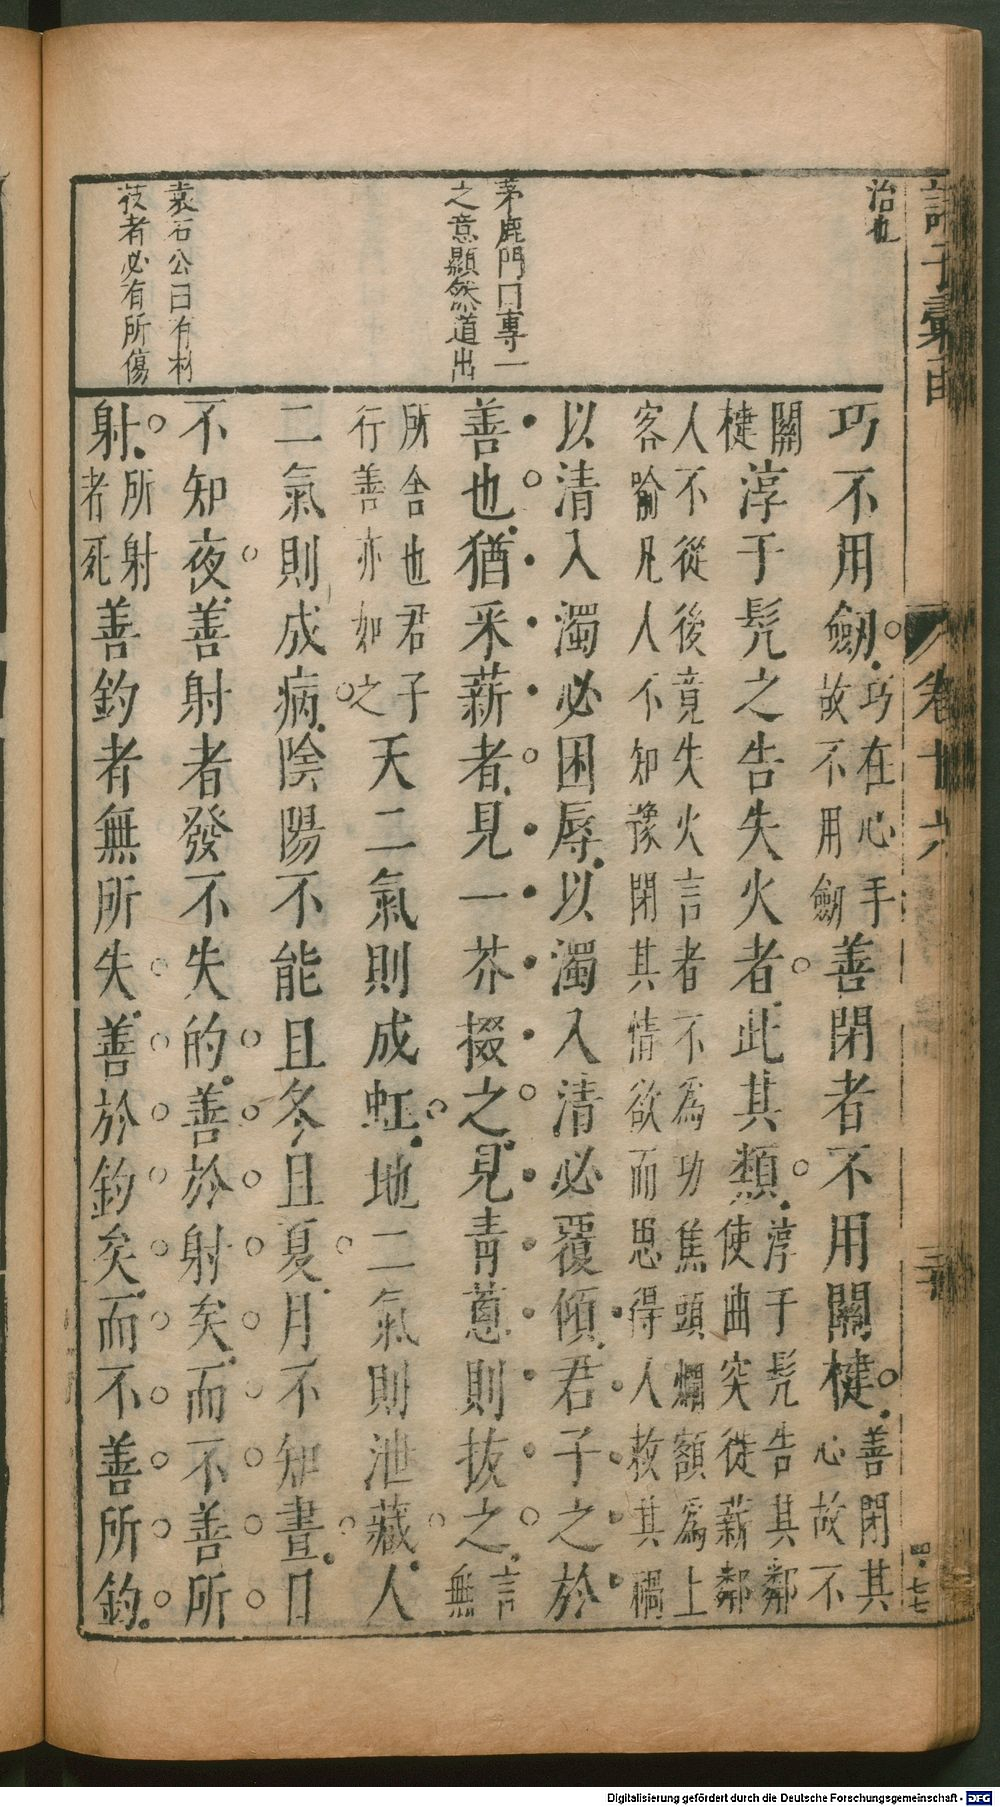 治也
茅鹿門曰專一
之意顯然道出
袁石公曰有材
技者必有所傷
巧不用劒巧在心手
故不用劒善閉者不用關楗善閉其
心故不
關
楗淳于髠之告失火者此其類淳于髠告其鄰
使曲突徙薪鄰
人不從後竟失火言者不爲功焦頭爛額爲上
客喻凡人不知豫閉其情欲而思得人救其禍
以清入濁必困辱以濁入清必覆傾君子之於
善也猶釆薪者見一芥掇之見青蔥則拔之言
無
所舍也君子
行善亦如之天二氣則成虹地二氣則泄藏人
二氣則成病陰陽不能且冬且夏月不知晝日
不知夜善射者發不失的善於射矣而不善所
射所射
者死善釣者無所失善於釣矣而不善所釣
卷廿六
四·七七
Digitalisierung gefördert durch die Deutsche Forschungsgemeinschaft - DFG